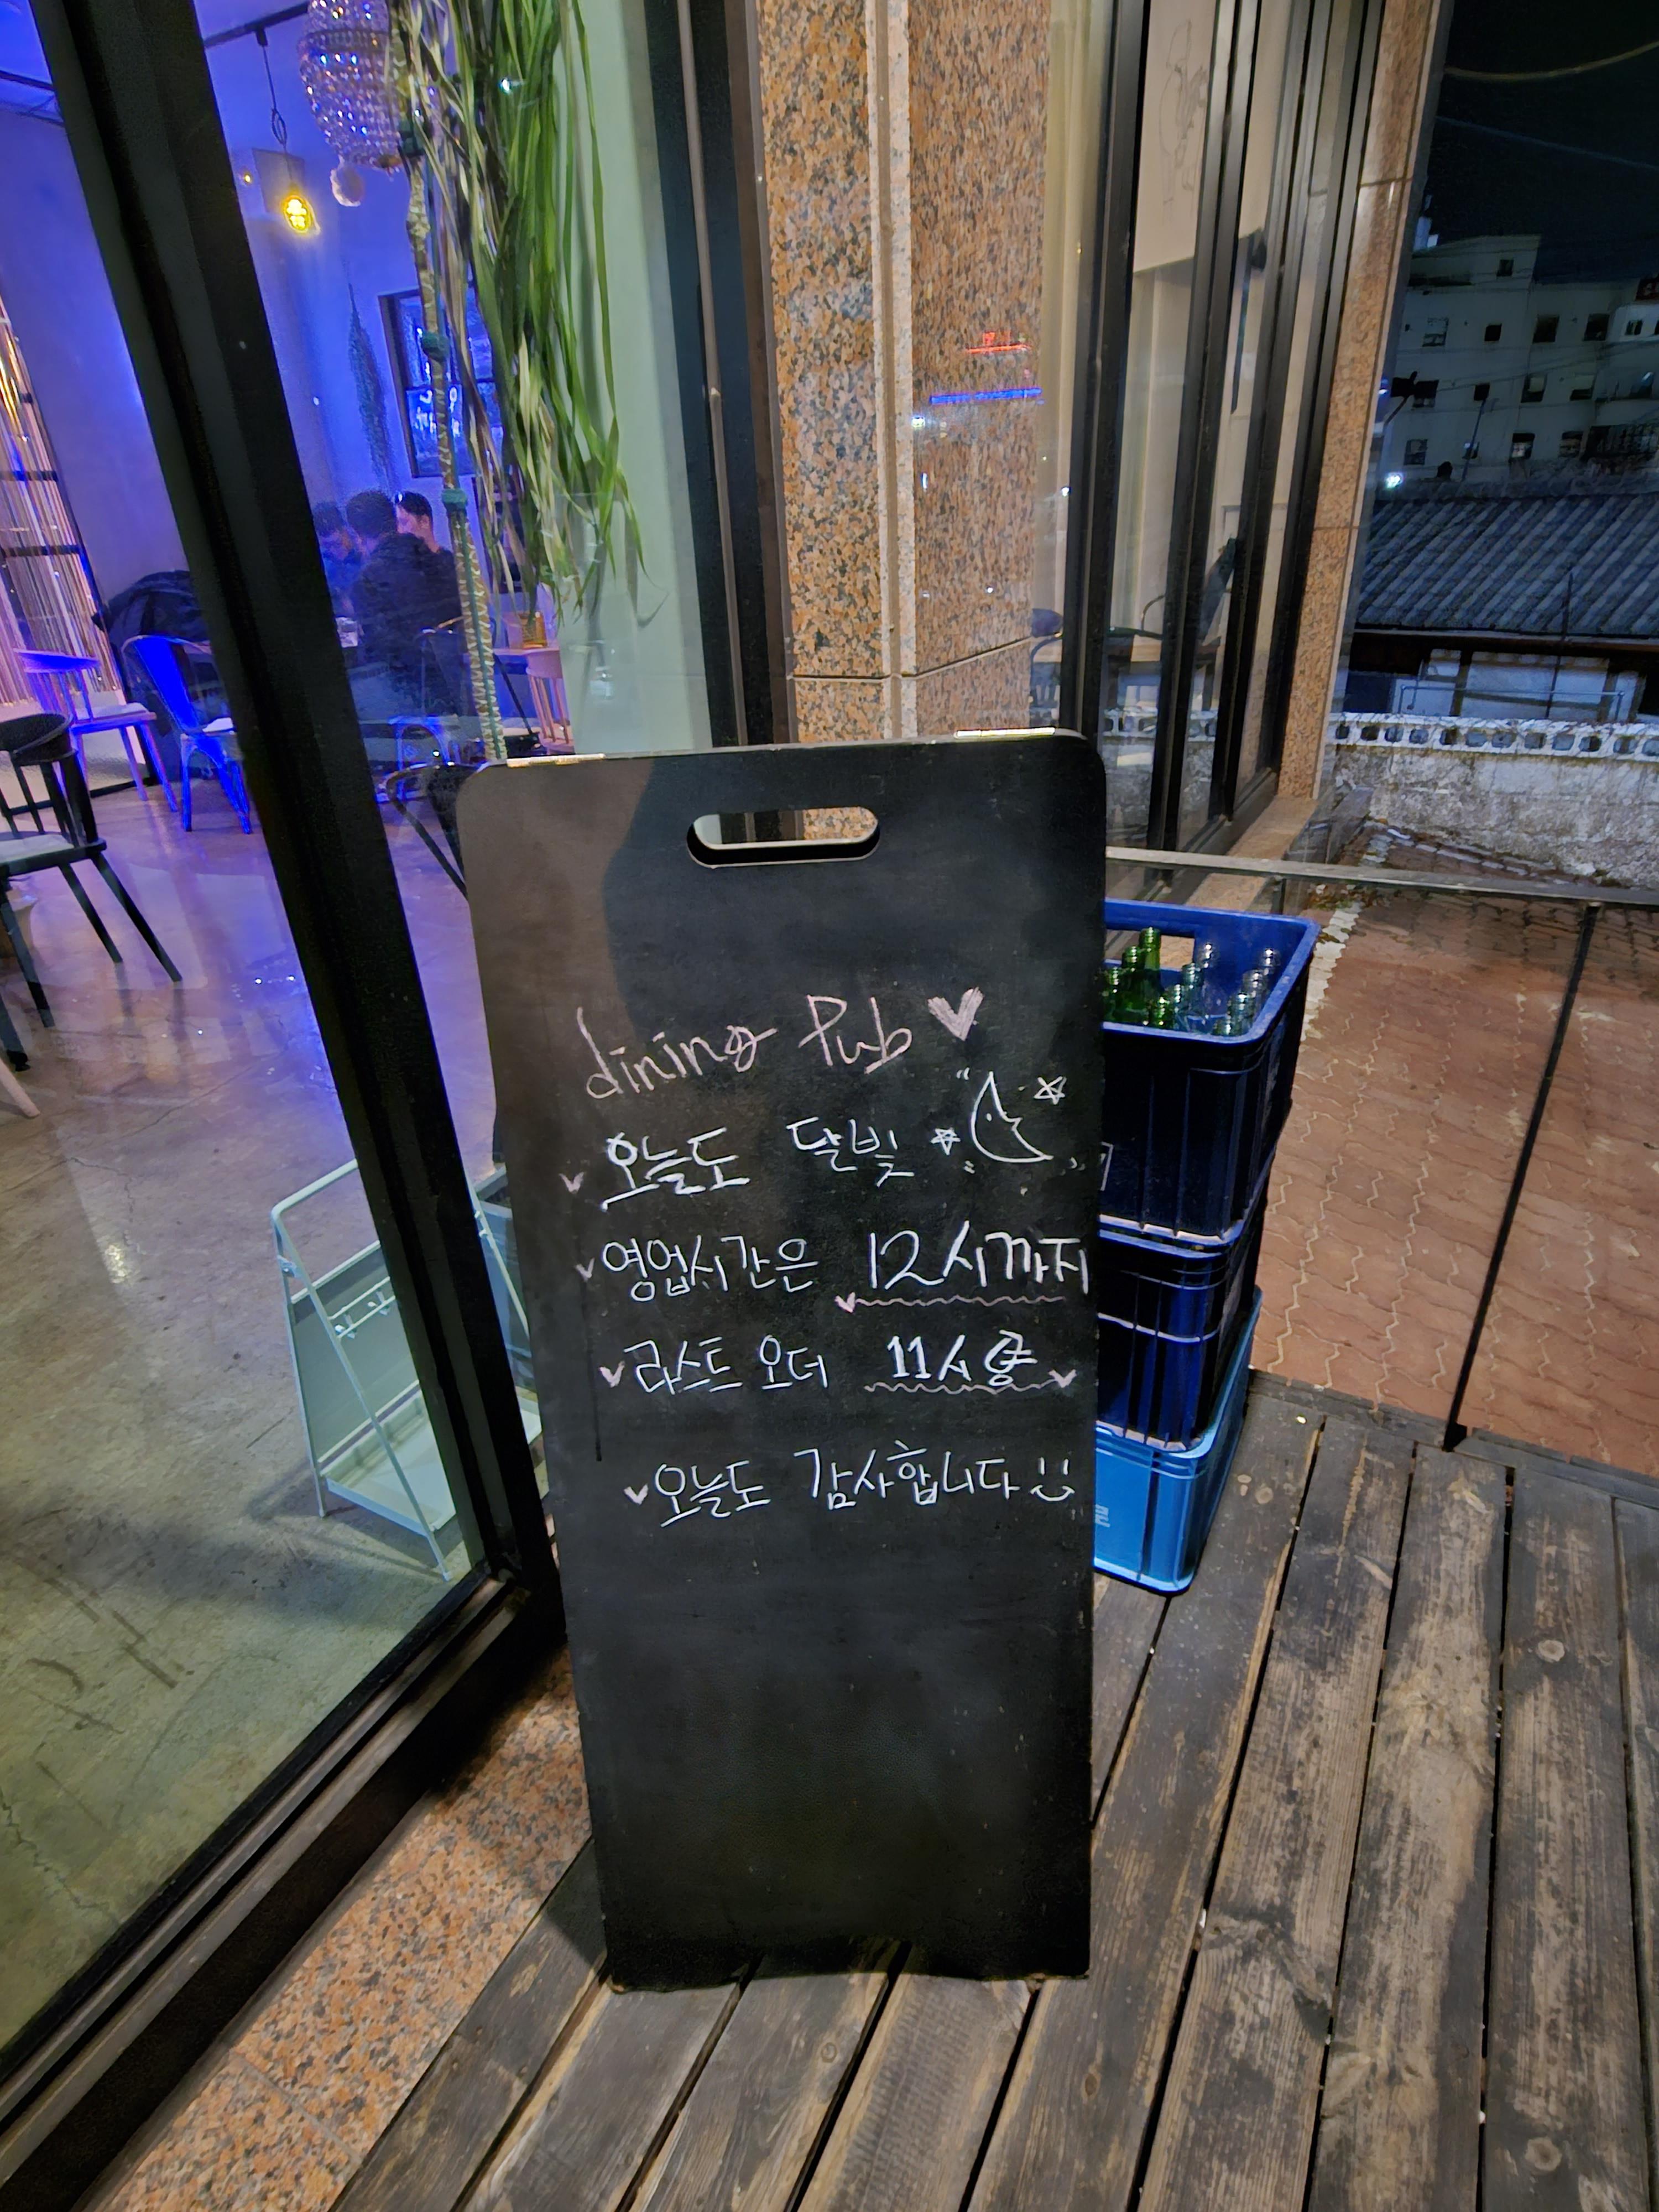 dining Pub
오늘도 달빛
영업시간은 12시까지
라스트 오더 11시
오늘도 감사합니다